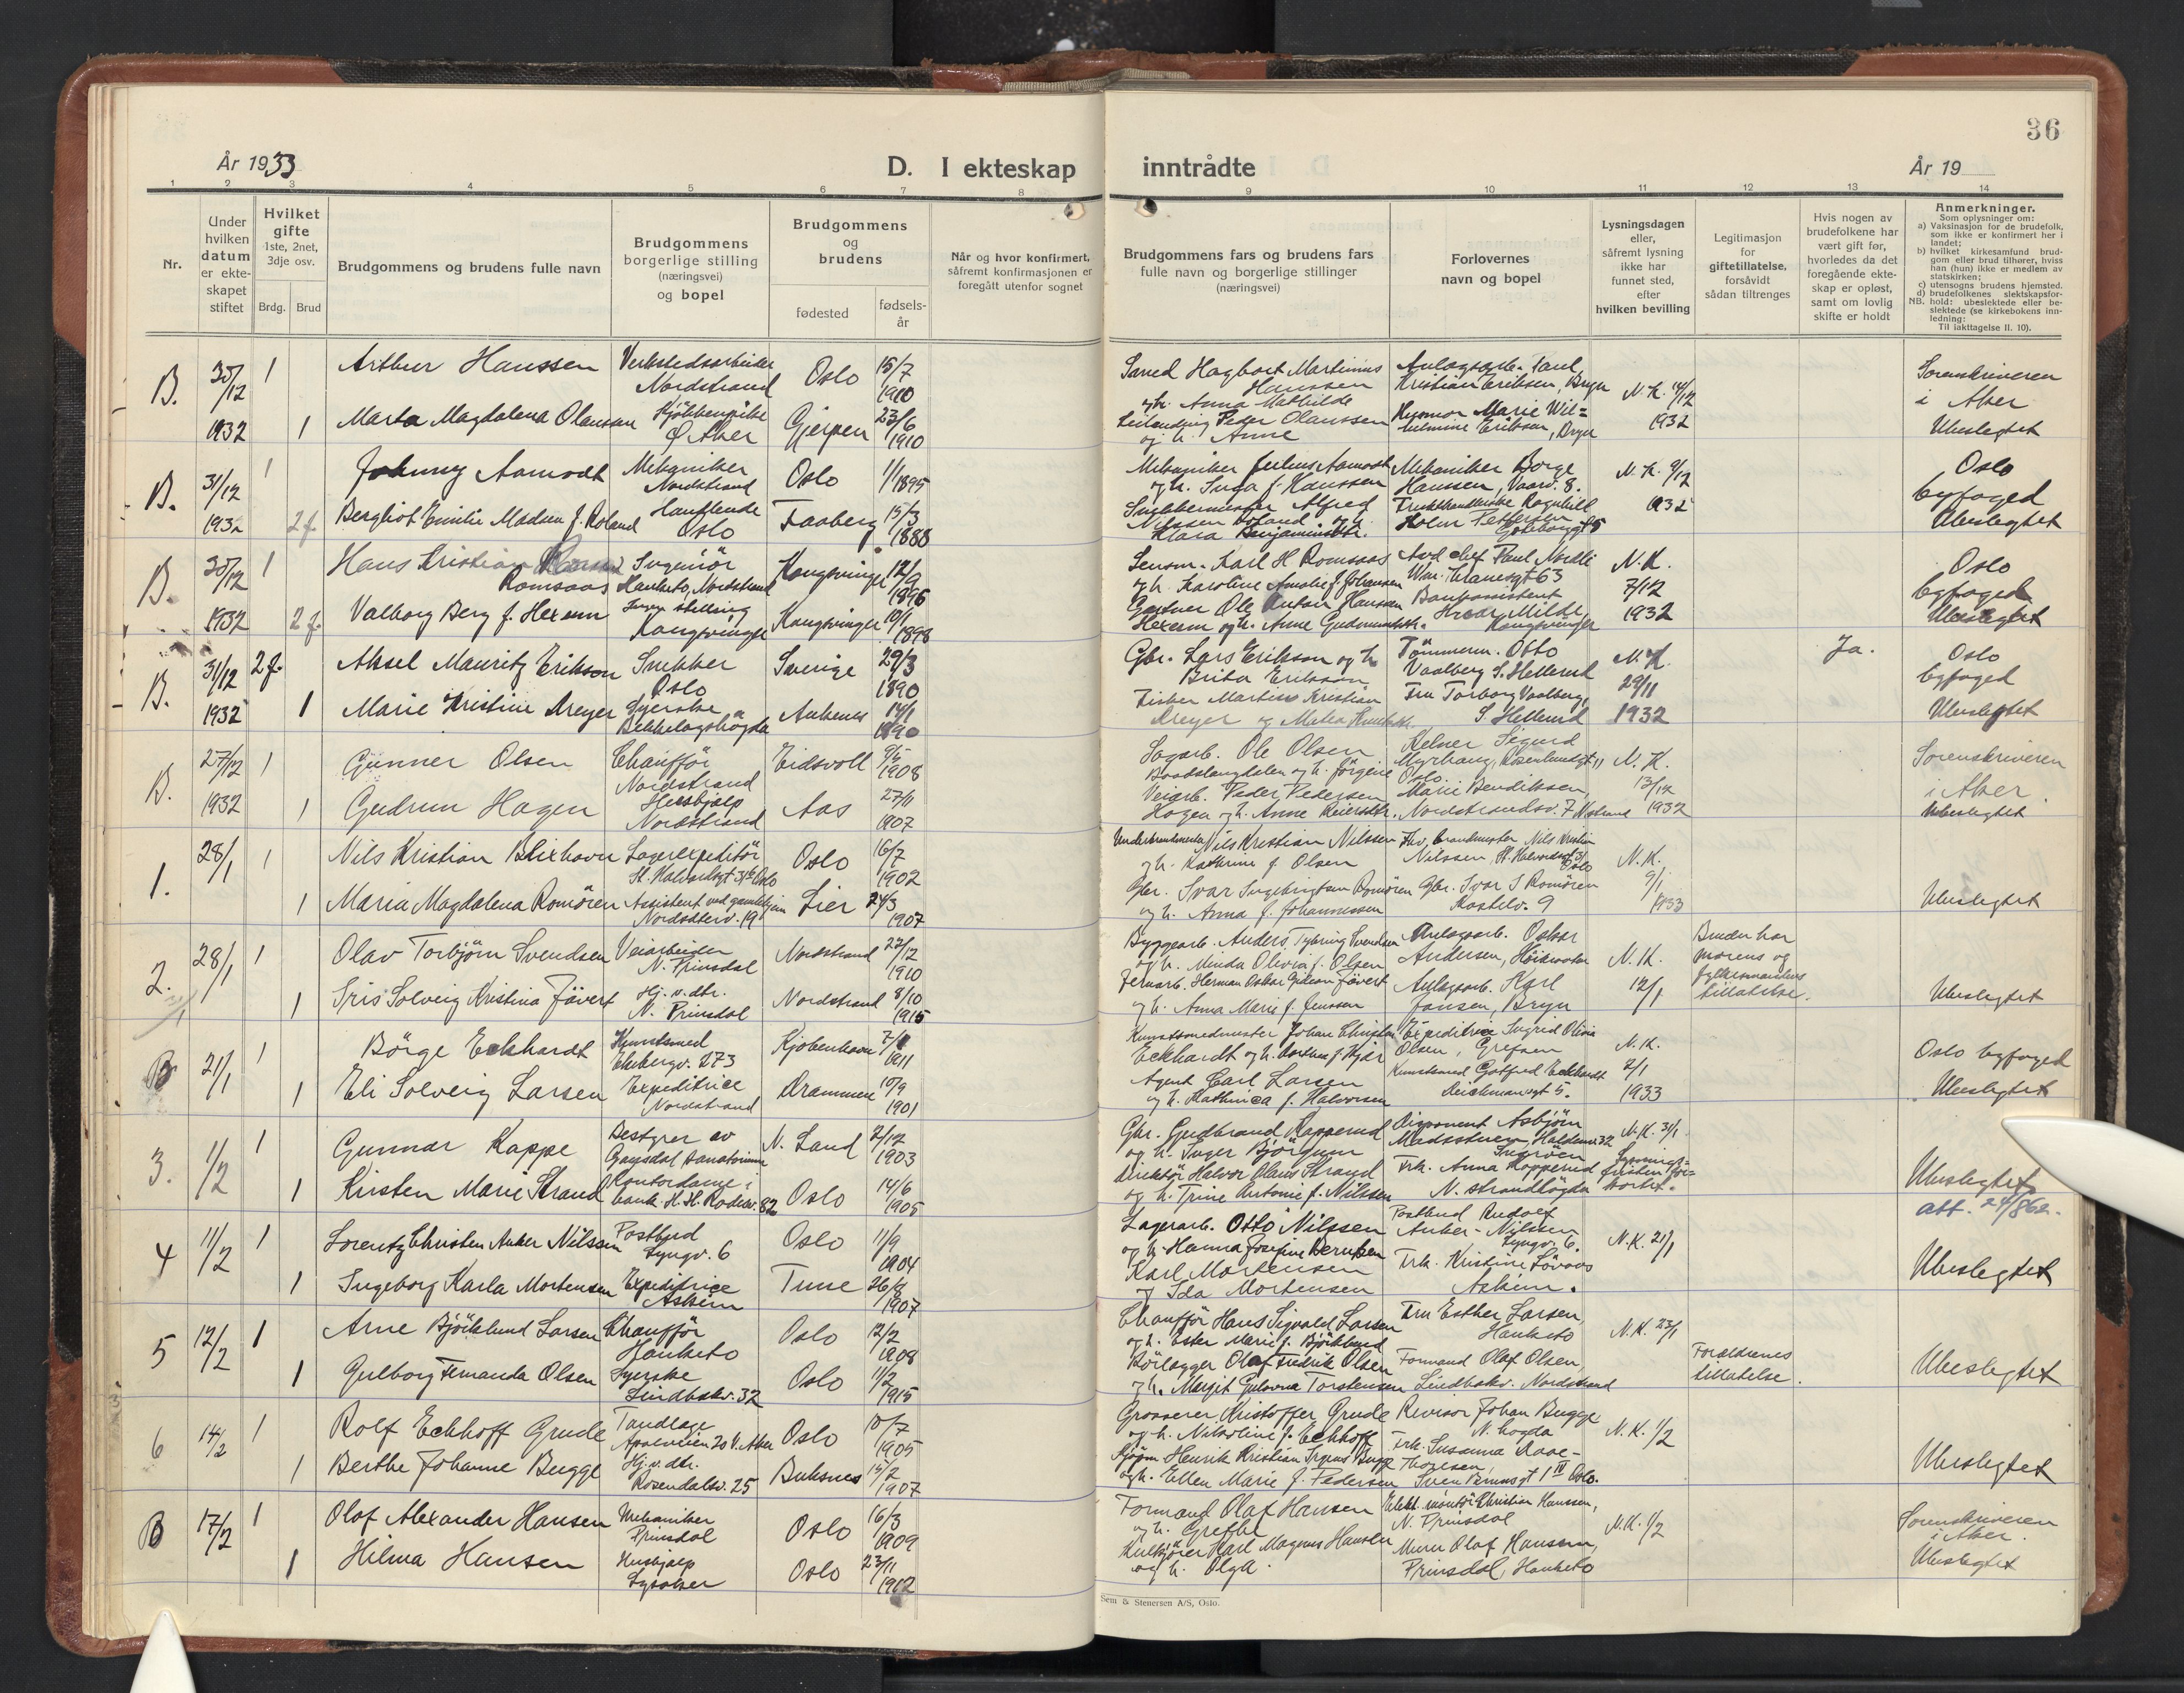 36
År 1933
D. I ekteskap inntrådte
År 19
1 2 3 4 5 6 7 8 9 10 11 12 13 14
Nr.
Under hvilken datum er ekteskapet stiftet
Hvilket gifte 1ste, 2net, 3dje osv.
Brdg. Brud
Brudgommens og brudens fulle navn
Brudgommens borgerlige stilling (næringsvei) og bopel
Brudgommens og brudens
fødested
fødsels-
år
Når og hvor konfirmert,
såfremt konfirmasjonen er
foregått utenfor sognet
Brudgommens fars og brudens fars
fulle navn og borgerlige stillinger
(næringsvei)
Forlovernes
navn og bopel
Lysningsdagen
eller,
såfremt lysning
ikke har
funnet sted,
efter
hvilken bevilling
Legitimasjon
for
giftetillatelse,
forsåvidt
sådan tiltrenges
Hvis nogen av
brudefolkene har
vært gift før,
hvorledes da det
foregående ekte-
skap er opløst,
samt om lovlig
skifte er holdt
Anmerkninger.
Som oplysninger om:
a) Vaksinasjon for de brudefolk,
som ikke er konfirmert her i
landet;
b) hvilket kirkesamfund brud-
gom eller brud tilhører, hviss
han (hun) ikke er medlem av
statskirken;
c) utensogns brudens hjemsted.
d) brudefolkenes slektskapsfor-
NB. hold: ubeslektede eller be-
slektede (se kirkebokens inn-
ledning:
Til iakttagelse II. 10).
B. 30/12 1932 1 Arthur Hanssen Verkstedsarbeider Nordstrand Oslo 15/7 1910 Hagbart Martinius Hanssen og h. Anna Mathilde Kristian Eriksen, Bryn N.K. 14/12 1932 Sorenskriveren i Aker
1 Marta Magdalena Olaussen Ø. Aker Gjerpen 23/6 1910 Peder Olaussen og h. Anne Marie Wilhelmine Eriksen, Bryn Ubeslegtet
B. 31/12 1932 1 Johnny Aamodt Mekaniker Nordstrand Oslo 1/1 1895 Mekaniker Julius Aamodt og h. Inga f. Hanssen Mekaniker Borge Hanssen, N.K. 9/12 1932 Oslo byfoged
2 f. Bergliot Emilie Madsen f. Roland Oslo Faaberg 15/3 1888 Alfred Nilssen Roland og h. Klara Benjaminsdtr. Ragnhild Holm Pettersen Ubeslegtet
B. 30/12 1932 1 Hans Kristian Romsaas Ingeniör Hauketo, Nordstrand Kongsvinger 12/9 1896 Karl H Romsaas og h. Karoline Amalie f. Johansen Paul Nordli N.K. 7/12 1932 Oslo byfoged
2 f. Valborg Berg f. Hexem Ingen stilling Kongsvinger Kongsvinger 10/1 1898 Gartner Ole Anton Hansen Hexem og h. Anne Gudmundsdtr. Bankassistent Milde, Kongsvinger Ubeslegtet
B. 31/12 1932 2 f. Aksel Mauritz Erikson Snekker Oslo Sverige 29/3 1890 Gbr. Lars Erikson og h. Brita Erikson Tömmerm. Otto Vaalberg S. Hellerud N.K. 29/11 1932 Ja. Oslo byfoged
1 Marie Kristine Dreyer Syerske Bekkelagshögda Ankenes 14/1 1890 Fisker Martin Kristian Dreyer Fru Torborg Vaalberg, S. Hellerud Ubeslegtet
B. 27/12 1932 1 Gunner Olsen Chaufför Nordstrand Eidsvoll 9/5 1908 Sagarb. Ole Olsen og h. Jörgine Kelner Sigurd Myrhaug, Oslo N.K. 13/12 1932 Sorenskriveren i Aker.
1 Gudrun Hagen Husbjælp Nordstrand Aas 27/11 1907 Veiarb. Peder Pedersen Hagen og h. Anne Marie Bendiksen, Nordstrandsv. 7 Ubeslegtet
1. 28/1 1 Nils Kristian Blixhavn Lagerexpeditör St. Halvardsgt Oslo Oslo 16/7 1902 Nils Kristian Nilssen og h. Kathrine f. Olsen Nils Kristian Nilssen, N.K. 9/1 1933
1 Maria Magdalena Romören Assistent ved gamlehjem Lier 24/3 1907 Gbr. Ivar Ingebrigtsen Romören og h. Anna f. Johannessen Gbr. Ivar I Romören Ubeslegtet
2. 28/1 1 Olav Torbjörn Svendsen Veiarbeider N. Prinsdal Nordstrand 22/12 1910 Byggearb. Anders Svendsen og h. Minda Olivia f. Olsen Anlagsarb. Oskar Andersen, N.K. 12/1 Bruden har morens og fylkesmandens tillatelse.
1 Iris Solveig Kristina Jövert Hj. v. dtr. N. Prinsdal Nordstrand 8/10 1915 Herman Oskar Gideon Jövert og h. Anna Marie f. Jenssen Anlagsarb. Karl Jansen, Bryn Ubeslegtet
B 21/1 1 Börge Eckhardt Kunstsmed Ekebergv. 273 Kjöbenhavn 1911 Kunstsmedmester Johan Christian Eckhardt og h. Expeditrice Ingrid Olivia Olsen, Grefsen N.K. 2/1 1933 Oslo byfoged
1 Eli Solveig Larsen Expeditrice Nordstrand Drammen 10/9 1901 Agent Carl Larsen og h. Kathinca f. Halvorsen Kunstsmed Gotfred Eckhardt Deichmansgt 5. Ubeslegtet
3. 1/2 1 Gunnar Kappe Bestyrer av Gausdal Sanatorium N. Land 2/12 1903 Gbr. Gudbrand Kapperud og h. Inger Disponent Asbjörn N.K. 3/1
1 Kirsten Marie Strand Kontordame i bank Oslo 14/6 1905 Direktör Halvor Olaus Strand og h. Trine Antonie f. Nilssen Frk. Anna Kopperud N. strandhögda Ubeslegtet
att. 24/862.
4 11/2 1 Lorentz Christen Anker Nilssen Postbud Lyngv. 6 Oslo 11/9 1904 Lagerarb. Otto Nilssen og h. Hanna Josefine Berntsen Postbud Rudolf Anker-Nilssen Lyngv. 6. N.K. 21/1
1 Ingeborg Karla Mortensen Expeditrice Askim Tune 1907 Karl Mortensen og Ida Mortensen Frk. Kristine Askim. Ubeslegtet
5 12/2 1 Arne Björklund Larsen Chaufför Hauketo Oslo 12/2 1908 Chaufför Hans Sigvald Larsen og h. Ester Marie f. Björklund Fru Esther Larsen, Hauketo N.K. 23/1
1 Gulborg Fernanda Olsen Syerske Oslo 1/2 1915 Rörlægger Olaf Fredrik Olsen og h. Margit Gulovna Torstensen Formand Olaf Olsen, Nordstrand Forældrenes tillatelse. Ubeslegtet
6 14/2 1 Rolf Eckhoff Grude Tandlæge V. Aker Oslo 10/7 1905 Grosserer Kristoffer Grude og h. Nikoline f. Eckhoff Revisor Johan Bugge N.K. 1/2
1 Berthe Johanne Bugge Hj. v. dtr. Rosendalsv. 25 Buksnes 15/2 1907 Henrik Kristian Bugge og h. Ellen Marie f. Pedersen Frk. Susanna Aase-Thoresen, Oslo. Ubeslegtet
B 17/2 1 Olaf Alexander Hansen Mekaniker Prinsdal Oslo 16/3 1909 Formand Olaf Hansen og h. Grethe Elekt. montör Christian Hanssen, N. Prinsdal N.K. 1/2 Sorenskriveren i Aker.
1 Hilma Hansen Husbjælp Oslo 23/11 1912 Kulkjörer Karl Magnus Hansen og h. Olga. Murer Olaf Hanssen, Prinsdal, Hauketo Ubeslegtet
Sem & Stenersen A/S, Oslo.